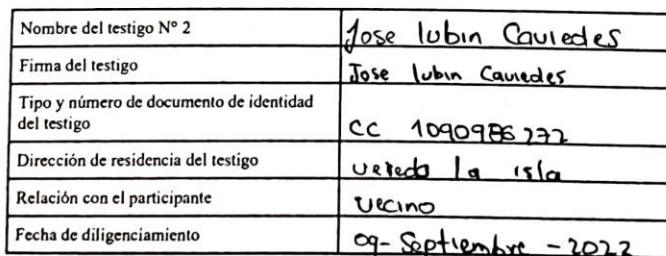 Nombre del testigo Nº 2 Jose lubin Caviedes
Firma del testigo Jose lubin Caviedes
Tipo y número de documento de identidad
del testigo CC 1090986272
Dirección de residencia del testigo vereda la isla
Relación con el participante vecino
Fecha de diligenciamiento 09-Septiembre -2022